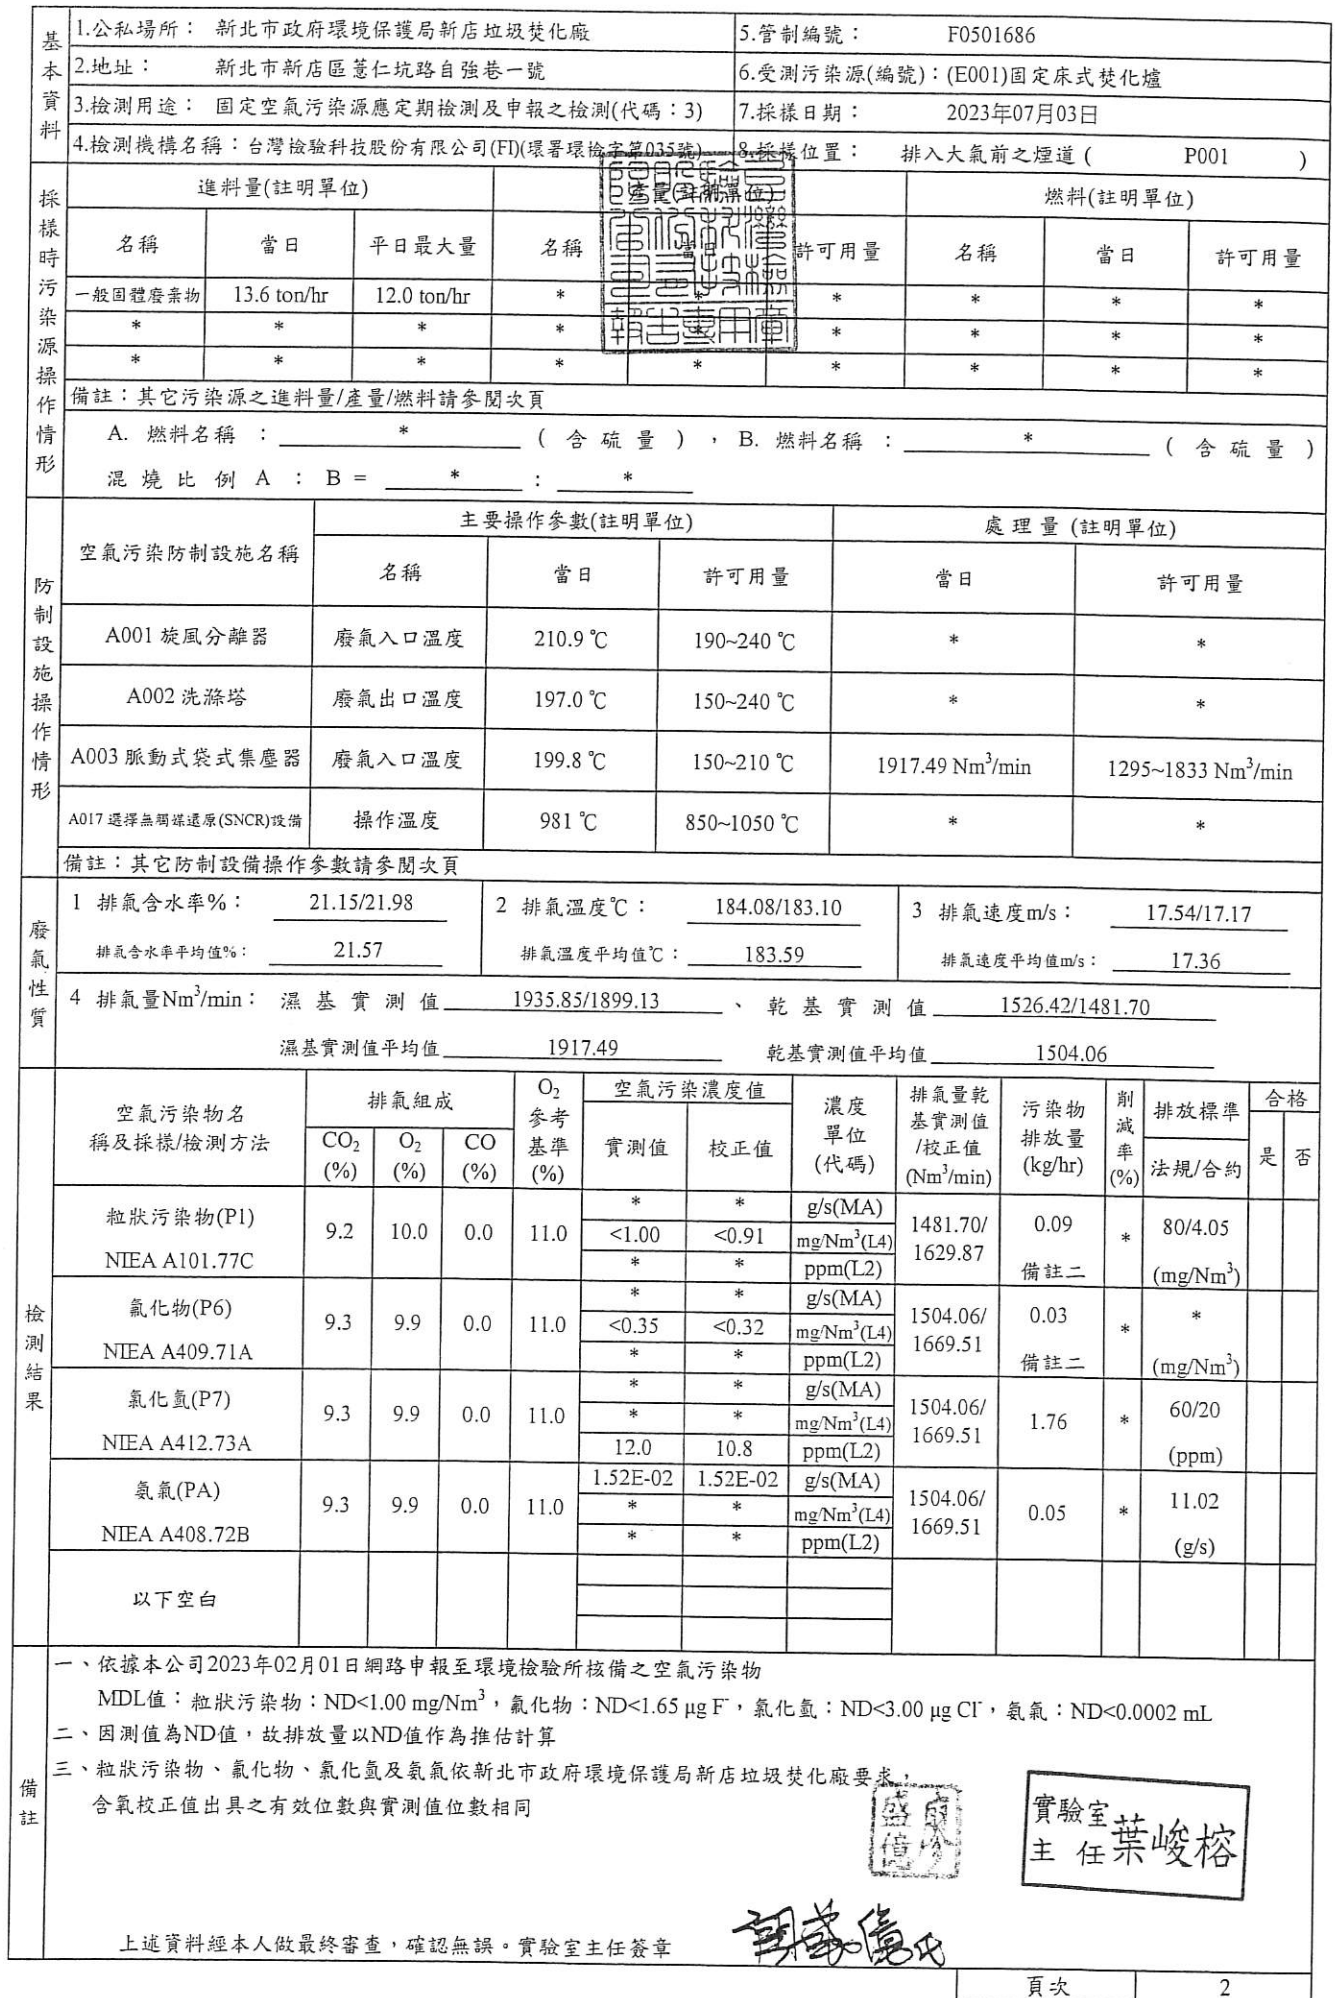 基本資料
1.公私場所： 新北市政府環境保護局新店垃圾焚化廠 5.管制編號： F0501686
2.地址： 新北市新店區薏仁坑路自強巷一號 6.受測污染源(編號)：(E001)固定床式焚化爐
3.檢測用途： 固定空氣污染源應定期檢測及申報之檢測(代碼：3) 7.採樣日期： 2023年07月03日
4.檢測機構名稱：台灣檢驗科技股份有限公司(FI)(環署環檢字第035號) 8.採樣位置： 排入大氣前之煙道 ( P001 )
採樣時污染源操作情形
進料量(註明單位) 產量(註明單位) 燃料(註明單位)
名稱 當日 平日最大量 名稱 當日 許可用量 名稱 當日 許可用量
一般固體廢棄物 13.6 ton/hr 12.0 ton/hr * * * * * *
* * * * * * * * *
* * * * * * * * *
備註：其它污染源之進料量/產量/燃料請參閱次頁
A. 燃料名稱 ： * ( 含 硫 量 ) ，B. 燃料名稱 ： * ( 含 硫 量 )
混 燒 比 例 A ： B = * ： *
防制設施操作情形
空氣污染防制設施名稱 主要操作參數(註明單位) 處 理 量 (註明單位)
名稱 當日 許可用量 當日 許可用量
A001 旋風分離器 廢氣入口溫度 210.9 ℃ 190~240 ℃ * *
A002 洗滌塔 廢氣出口溫度 197.0 ℃ 150~240 ℃ * *
A003 脈動式袋式集塵器 廢氣入口溫度 199.8 ℃ 150~210 ℃ 1917.49 Nm³/min 1295~1833 Nm³/min
A017 選擇無觸媒還原(SNCR)設備 操作溫度 981 ℃ 850~1050 ℃ * *
備註：其它防制設備操作參數請參閱次頁
廢氣性質
1 排氣含水率%： 21.15/21.98 2 排氣溫度℃： 184.08/183.10 3 排氣速度m/s： 17.54/17.17
排氣含水率平均值%： 21.57 排氣溫度平均值℃： 183.59 排氣速度平均值m/s： 17.36
4 排氣量Nm³/min： 濕 基 實 測 值 1935.85/1899.13 、 乾 基 實 測 值 1526.42/1481.70
濕基實測值平均值 1917.49 乾基實測值平均值 1504.06
檢測結果
空氣污染物名稱及採樣/檢測方法 排氣組成 O₂參考基準(%) 空氣污染濃度值 濃度單位(代碼) 排氣量乾基實測值/校正值(Nm³/min) 污染物排放量(kg/hr) 削減率(%) 排放標準 合格
CO₂(%) O₂(%) CO(%) 實測值 校正值 法規/合約 是 否
粒狀污染物(P1) NIEA A101.77C 9.2 10.0 0.0 11.0 * * g/s(MA) 1481.70/1629.87 0.09 備註二 * 80/4.05 (mg/Nm³)
<1.00 <0.91 mg/Nm³(L4)
* * ppm(L2)
氟化物(P6) NIEA A409.71A 9.3 9.9 0.0 11.0 * * g/s(MA) 1504.06/1669.51 0.03 備註二 * * (mg/Nm³)
<0.35 <0.32 mg/Nm³(L4)
* * ppm(L2)
氯化氫(P7) NIEA A412.73A 9.3 9.9 0.0 11.0 * * g/s(MA) 1504.06/1669.51 1.76 * 60/20 (ppm)
* * mg/Nm³(L4)
12.0 10.8 ppm(L2)
氨氣(PA) NIEA A408.72B 9.3 9.9 0.0 11.0 1.52E-02 1.52E-02 g/s(MA) 1504.06/1669.51 0.05 * 11.02 (g/s)
* * mg/Nm³(L4)
* * ppm(L2)
以下空白
備註
一、依據本公司2023年02月01日網路申報至環境檢驗所核備之空氣污染物
MDL值：粒狀污染物：ND<1.00 mg/Nm³，氟化物：ND<1.65 μg F⁻，氯化氫：ND<3.00 μg Cl⁻，氨氣：ND<0.0002 mL
二、因測值為ND值，故排放量以ND值作為推估計算
三、粒狀污染物、氟化物、氯化氫及氨氣依新北市政府環境保護局新店垃圾焚化廠要求，
含氧校正值出具之有效位數與實測值位數相同
實驗室
主 任 葉峻榕
上述資料經本人做最終審查，確認無誤。實驗室主任簽章
頁次 2